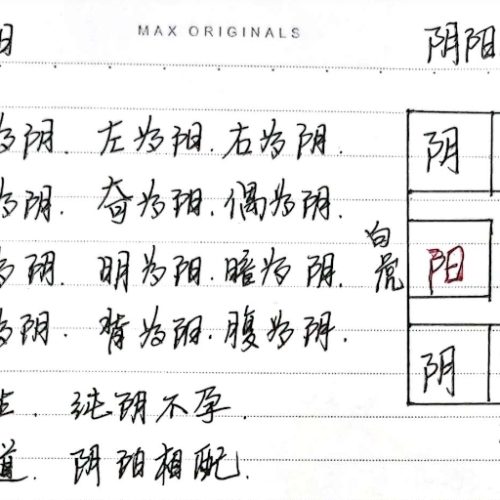 MAX ORIGINALS
阳 阴阳
为阴. 左为阳. 右为阴.
为阴. 奇为阳. 偶为阴.
为阴. 明为阳. 暗为阴.
为阴. 背为阳. 腹为阴.
生. 纯阴不孕.
道. 阴阳相配.
阴
白虎 阳
阴